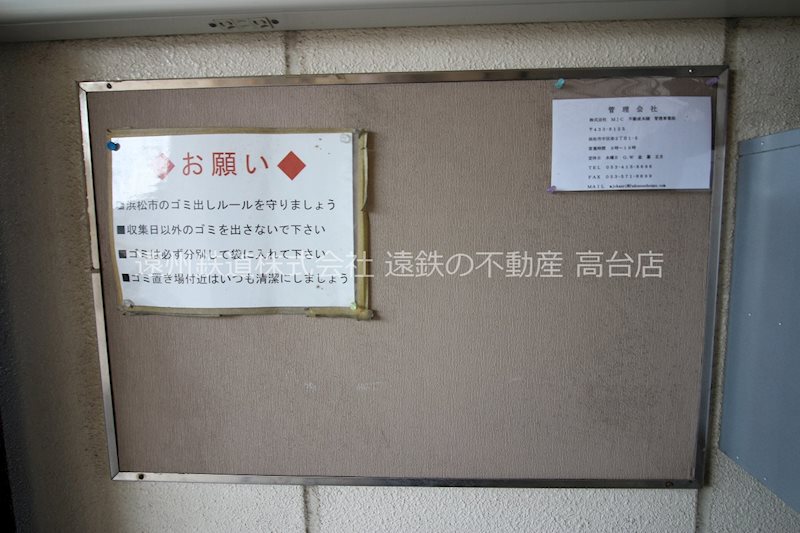 ◆お願い◆
■浜松市のゴミ出しルールを守りましょう
■収集日以外のゴミを出さないで下さい
■ゴミは必ず分別して袋に入れて下さい
■ゴミ置き場付近はいつも清潔にしましょう
管理会社
株式会社 MIC 不動産本舗 管理事業部
〒433-8125
営業時間 9時~18時
定休日 水曜日 G.W 盆 暮 正月
TEL
FAX 053-571-8699
MAIL
遠州鉄道株式会社 遠鉄の不動産 高台店